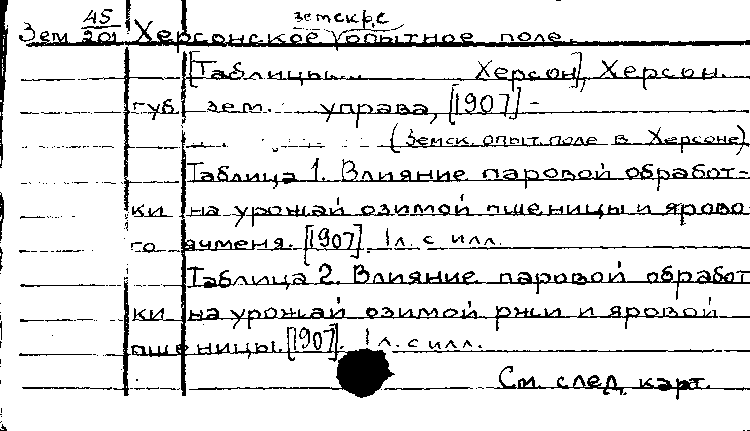 земское
Зем 45/201 Херсонское опытное поле.
[Таблицы... Херсон], Херсон.
губ. зем. управа, [1907] -
(Земск. опыт. поле в Херсоне)
Таблица 1. Влияние паровой обработ-
ки на урожай озимой пшеницы и ярово-
го ячменя. [1907]. 1 л. с илл.
Таблица 2. Влияние паровой обработ
ки на урожай озимой ржи и яровой
пшеницы. [1907]. 1 л. с илл.
См. след. карт.